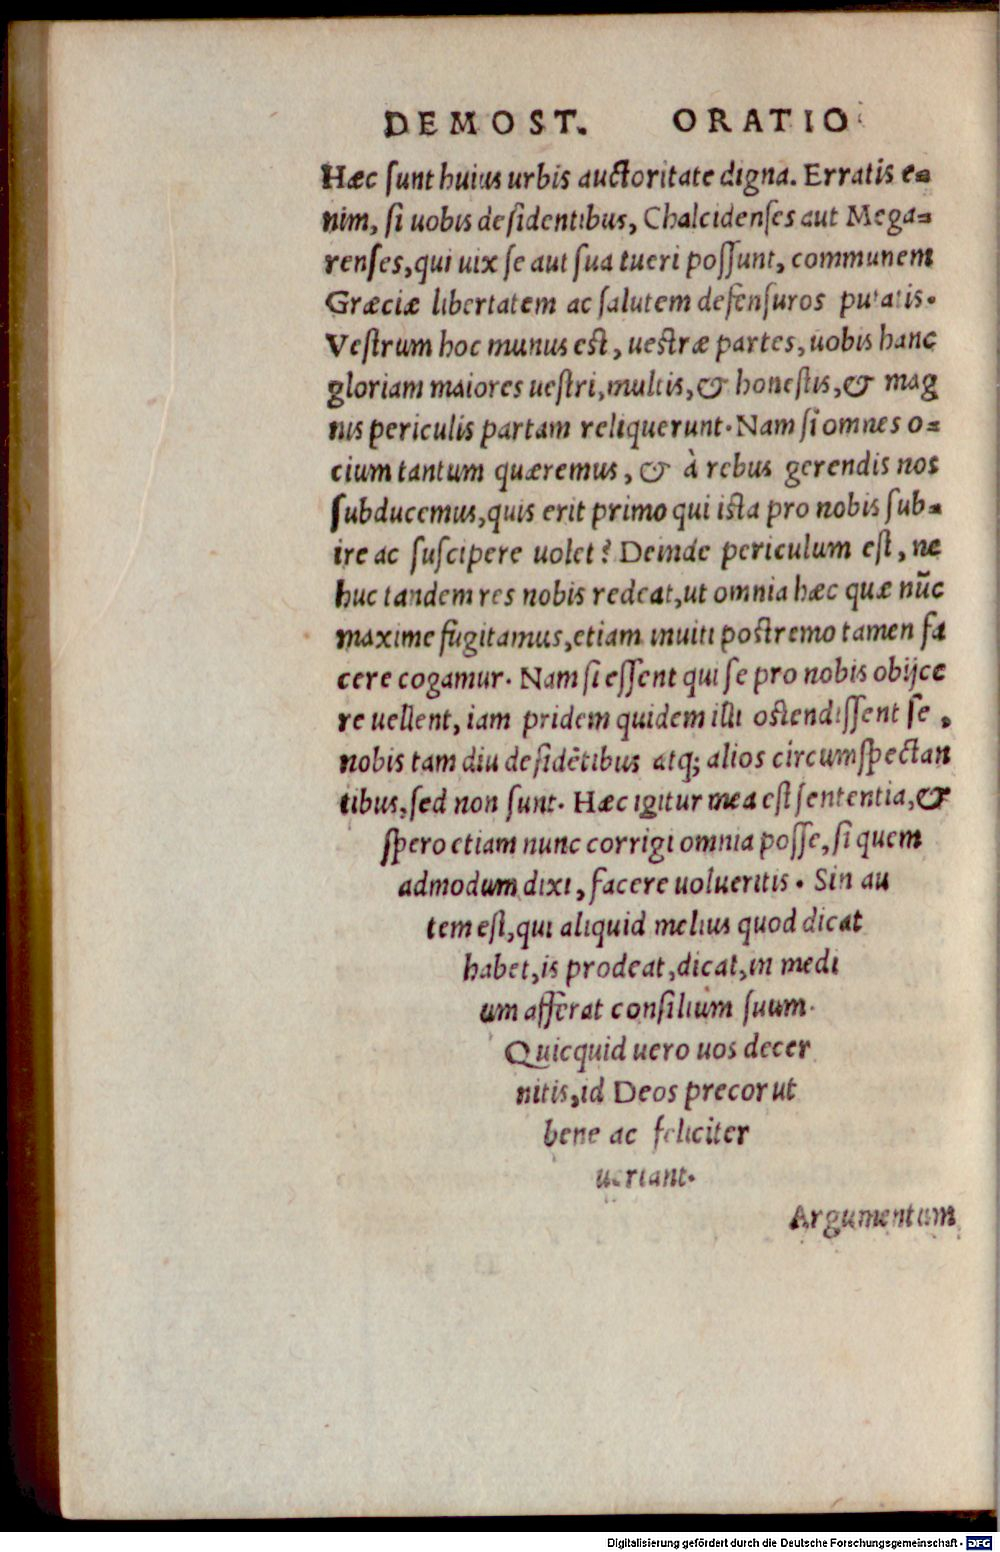 DEMOST. ORATIO
Hæc ſunt huius urbis auctoritate digna. Erratis e=
nim, ſi uobis deſidentibus, Chalcidenſes aut Mega=
renſes, qui uix ſe aut ſua tueri poſſunt, communem
Græciæ libertatem ac ſalutem defenſuros putatis.
Veſtrum hoc munus eſt, ueſtræ partes, uobis hanc
gloriam maiores ueſtri, multis, & honeſtis, & mag
nis periculis partam reliquerunt. Nam ſi omnes o=
cium tantum quæremus, & à rebus gerendis nos
ſubducemus, quis erit primo qui iſta pro nobis ſub=
ire ac ſuſcipere uolet? Deinde periculum eſt, ne
huc tandem res nobis redeat, ut omnia hæc quæ nūc
maxime fugitamus, etiam inuiti poſtremo tamen fa
cere cogamur. Nam ſi eſſent qui ſe pro nobis obijce
re uellent, iam pridem quidem illi oſtendiſſent ſe,
nobis tam diu deſidētibus atq; alios circumſpectan
tibus, ſed non ſunt. Hæc igitur mea eſt ſententia, &
ſpero etiam nunc corrigi omnia poſſe, ſi quem
admodum dixi, facere uolueritis. Sin au
tem eſt, qui aliquid melius quod dicat
habet, is prodeat, dicat, in medi
um afferat conſilium ſuum.
Quicquid uero uos decer
nitis, id Deos precor ut
bene ac feliciter
uertant.
Argumentum
Digitalisierung gefördert durch die Deutsche Forschungsgemeinschaft - DFG